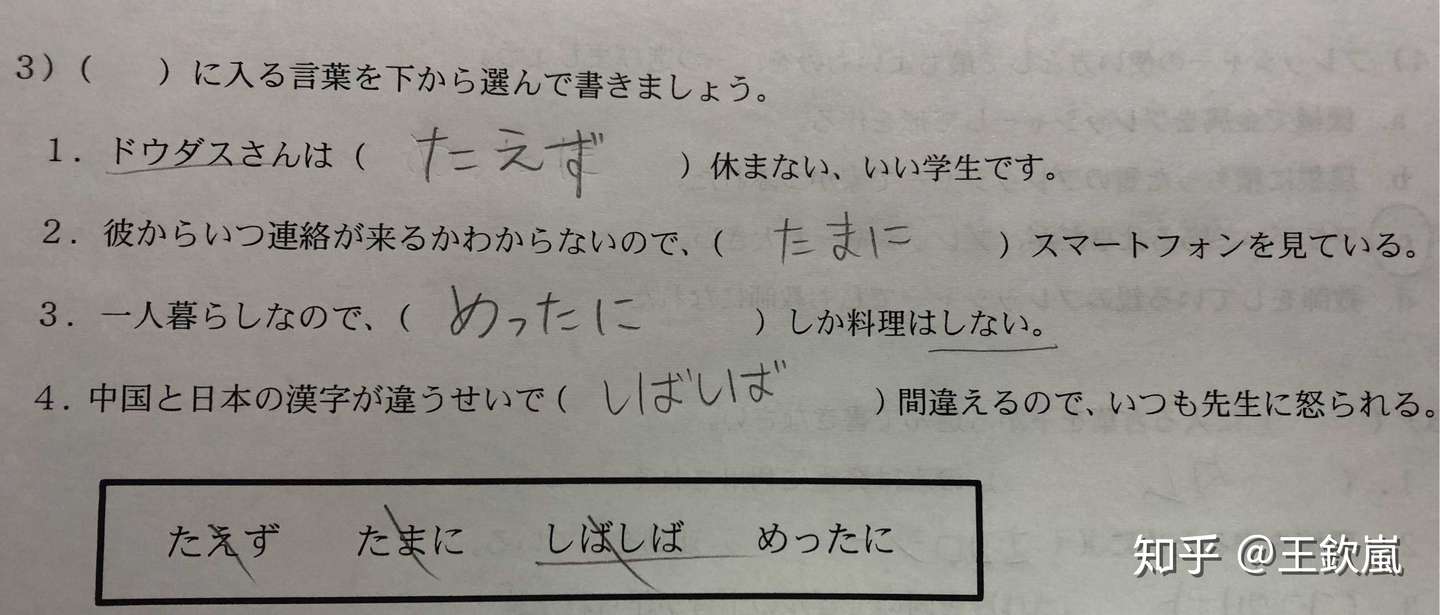 3)(　　)に入る言葉を下から選んで書きましょう。
1. ドウダスさんは( たえず )休まない、いい学生です。
2. 彼からいつ連絡が来るかわからないので、( たまに )スマートフォンを見ている。
3. 一人暮らしなので、( めったに )しか料理はしない。
4. 中国と日本の漢字が違うせいで( しばいば )間違えるので、いつも先生に怒られる。
たえず　たまに　しばしば　めったに
知乎 @王欽嵐